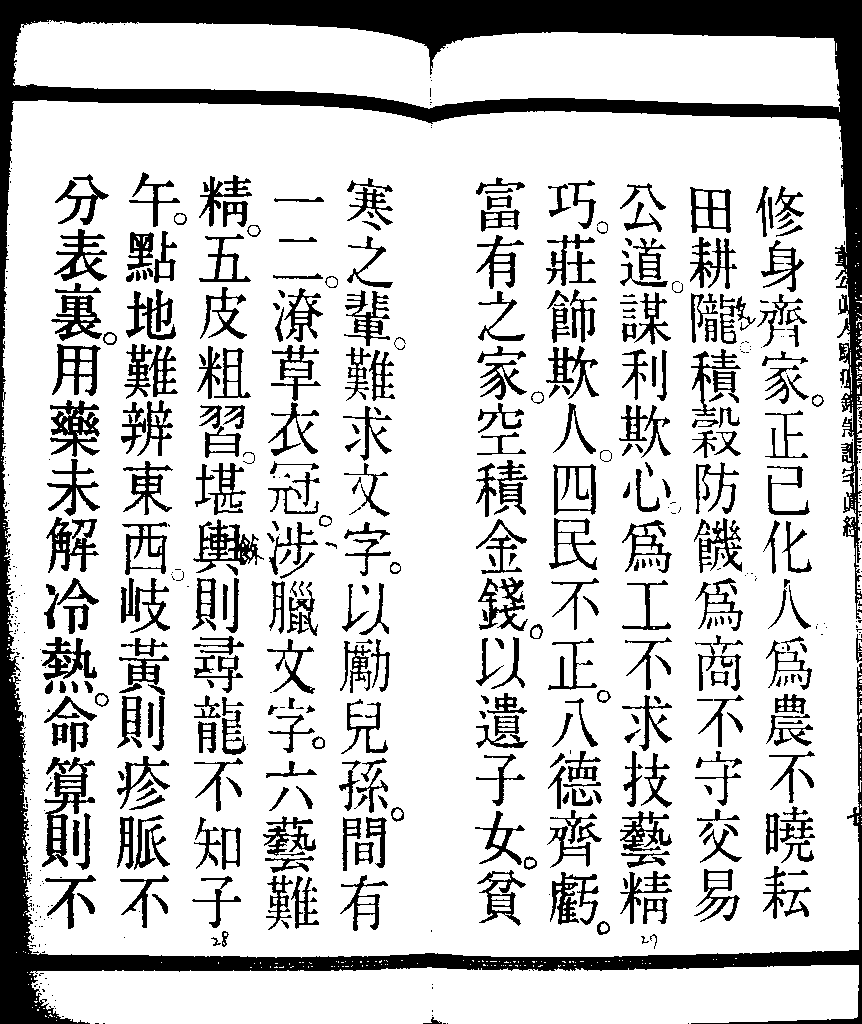 修身齊家。正己化人。爲農不曉耘
田耕隴。積穀防饑。爲商不守交易
公道。謀利欺心。爲工不求技藝精
巧。莊飾欺人。四民不正。八德齊虧。
富有之家。空積金錢。以遺子女。貧
寒之輩。難求文字。以勵兒孫。間有
一二。潦草衣冠。涉臘文字。六藝難
精。五皮粗習。堪輿則尋龍不知子
午。點地難辨東西。岐黃則疹脈不
分表裏。用藥未解冷熱。命算則不
27
28